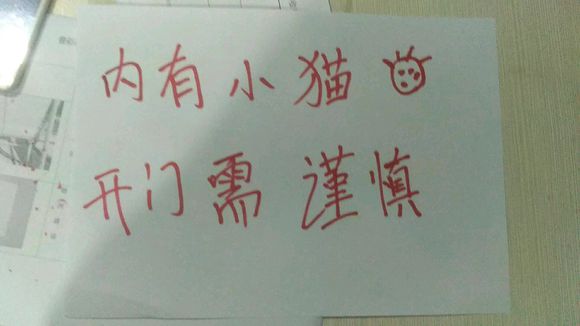 内有小猫
开门需谨慎